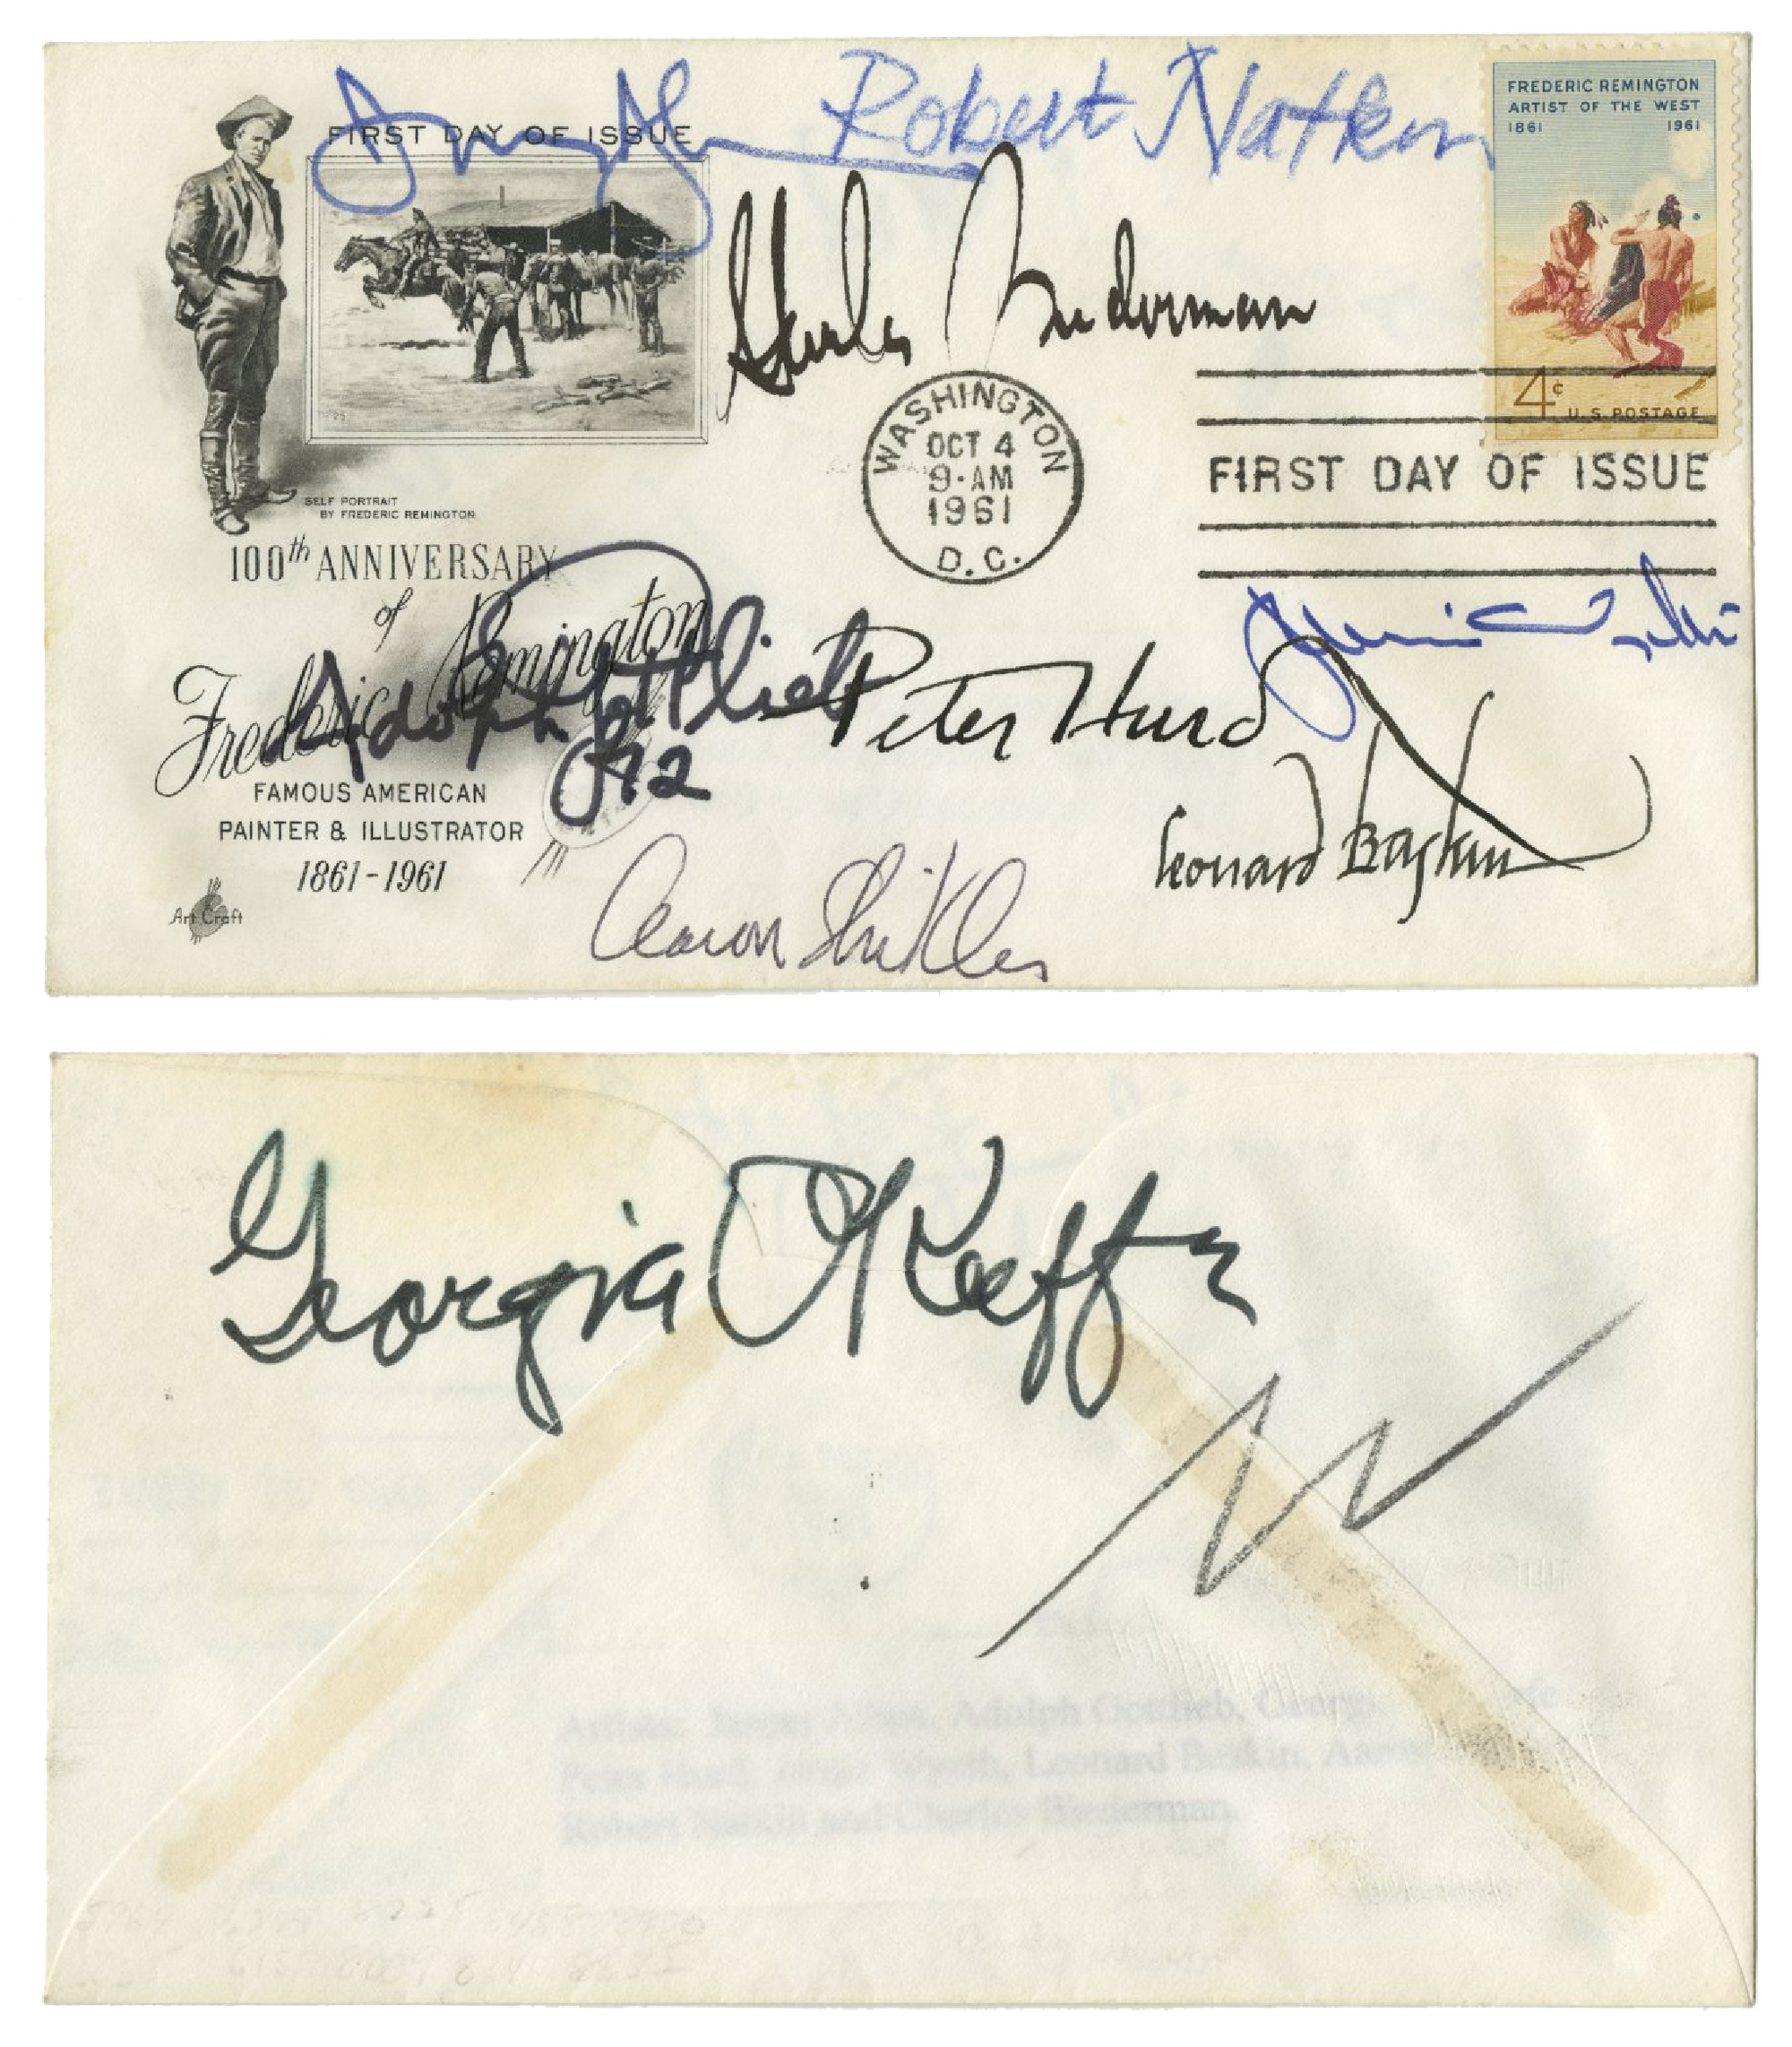 FIRST DAY OF ISSUE
Robert Natkin
FREDERIC REMINGTON
ARTIST OF THE WEST
1861 1961
4c
U.S. POSTAGE
Charles Biederman
WASHINGTON
OCT 4
9-AM
1961
D.C.
FIRST DAY OF ISSUE
SELF PORTRAIT
BY FREDERIC REMINGTON
100th ANNIVERSARY
of
Frederic Remington
FAMOUS AMERICAN
PAINTER & ILLUSTRATOR
1861-1961
Art Craft
Adolph Gottlieb
Peter Hurd
Leonard Baskin
Aaron Shikler
Georgia O'Keeffe
Adolph Gottlieb,
Peter Hurd, Wyeth, Leonard Baskin,
Robert Natkin and Charles Biederman.